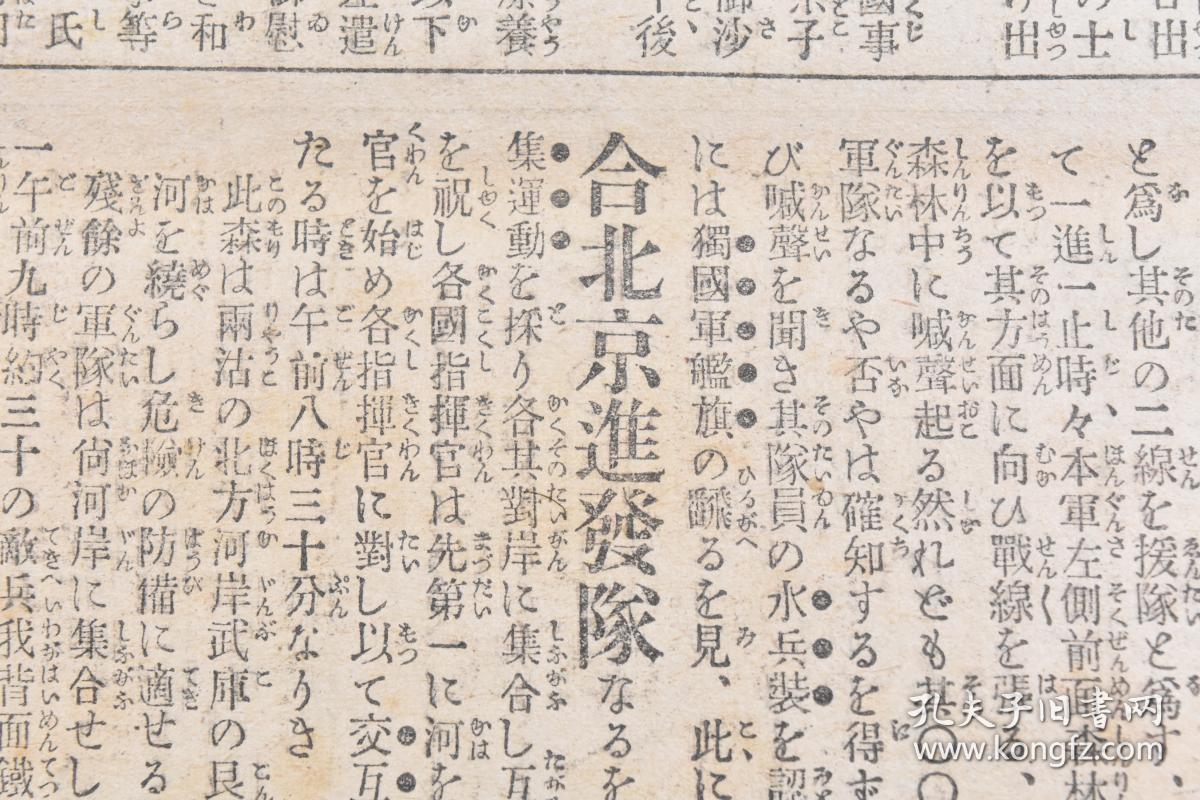 合出
の士
り出
國事
京子
御沙
午後
療養
以下
遣
御慰
と和
等
氏
と爲し其他の二線を援隊と爲す、
て一進一止時々本軍左側前面森林
を以て其方面に向ひ戰線を張る、
森林中に喊聲起る然れども其〇〇
軍隊なるや否やは確知するを得ず
び喊聲を聞き其隊員の水兵裝を認
には獨國軍艦旗の飜るを見、此に
合北京進發隊なるを
集運動を採り各其對岸に集合し互
を祝し各國指揮官は先第一に河を
官を始め各指揮官に對し以て交互
たる時は午前八時三十分なりき
此森は兩沽の北方河岸武庫の艮
河を繞らし危險の防備に適せる
殘餘の軍隊は尙河岸に集合せし
一午前九時約三十の敵兵我背面鐵
孔夫子旧书网
www.kongfz.com